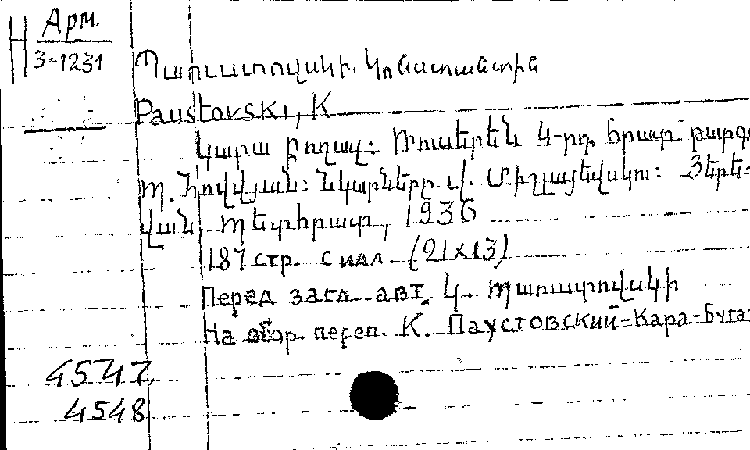 Н Арм.
3-1231
Պաուստովսկի, Կոնստանտին
Paustovski, K
Կարա բուղազ: Ռուսերեն 4-րդ հրատ. թարգմ
Մ. Հովվյան: Նկարները Երե-
վան, Պետհրատ, 1936
187 стр. с илл. (21x13)
Перед загл. авт. Կ. Պաուստովսկի
На обор. переп. К. Паустовский-Кара-Бугаз
4547
4548